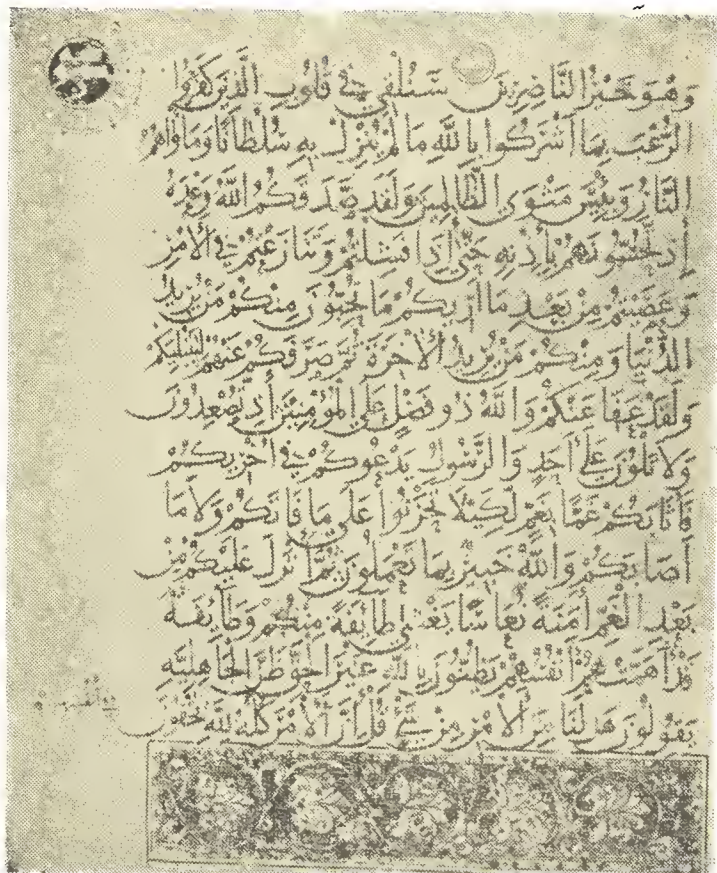 وَهُوَ خَيْرُ النَّاصِرِينَ سَنُلْقِي فِي قُلُوبِ الَّذِينَ كَفَرُوا
الرُّعْبَ بِمَا أَشْرَكُوا بِاللَّهِ مَا لَمْ يُنَزِّلْ بِهِ سُلْطَانًا وَمَأْوَاهُمُ
النَّارُ وَبِئْسَ مَثْوَى الظَّالِمِينَ وَلَقَدْ صَدَقَكُمُ اللَّهُ وَعْدَهُ
إِذْ تَحُسُّونَهُمْ بِإِذْنِهِ حَتَّى إِذَا فَشِلْتُمْ وَتَنَازَعْتُمْ فِي الْأَمْرِ
وَعَصَيْتُمْ مِنْ بَعْدِ مَا أَرَيكُمْ مَا تُحِبُّونَ مِنْكُمْ مَنْ يُرِيدُ
الدُّنْيَا وَمِنْكُمْ مَنْ يُرِيدُ الْأَخِرَةَ ثُمَّ صَرَفَكُمْ عَنْهُمْ لِيَبْتَلِيَكُمْ
وَلَقَدْ عَفَا عَنْكُمْ وَاللَّهُ ذُو فَضْلٍ عَلَى الْمُؤْمِنِينَ إِذْ تُصْعِدُونَ
وَلَا تَلْوُنَ عَلَى أَحَدٍ وَالرَّسُولُ يَدْعُوكُمْ فِي أُخْرَيكُمْ
فَأَثَابَكُمْ غَمًّا بِغَمٍّ لِكَيْلَا تَحْزَنُوا عَلَى مَا فَاتَكُمْ وَلَا مَا
أَصَابَكُمْ وَاللَّهُ خَبِيرٌ بِمَا تَعْمَلُونَ ثُمَّ أَنْزَلَ عَلَيْكُمْ مِنْ
بَعْدِ الْغَمِّ أَمَنَةً نُعَاسًا يَغْشَى طَائِفَةً مِنْكُمْ وَطَائِفَةٌ
قَدْ أَهَمَّتْهُمْ أَنْفُسُهُمْ يَظُنُّونَ بِاللَّهِ غَيْرَ الْحَقِّ ظَنَّ الْجَاهِلِيَّةِ
يَقُولُونَ هَلْ لَنَا مِنَ الْأَمْرِ مِنْ شَيْءٍ قُلْ إِنَّ الْأَمْرَ كُلَّهُ لِلَّهِ يُخْفُونَ